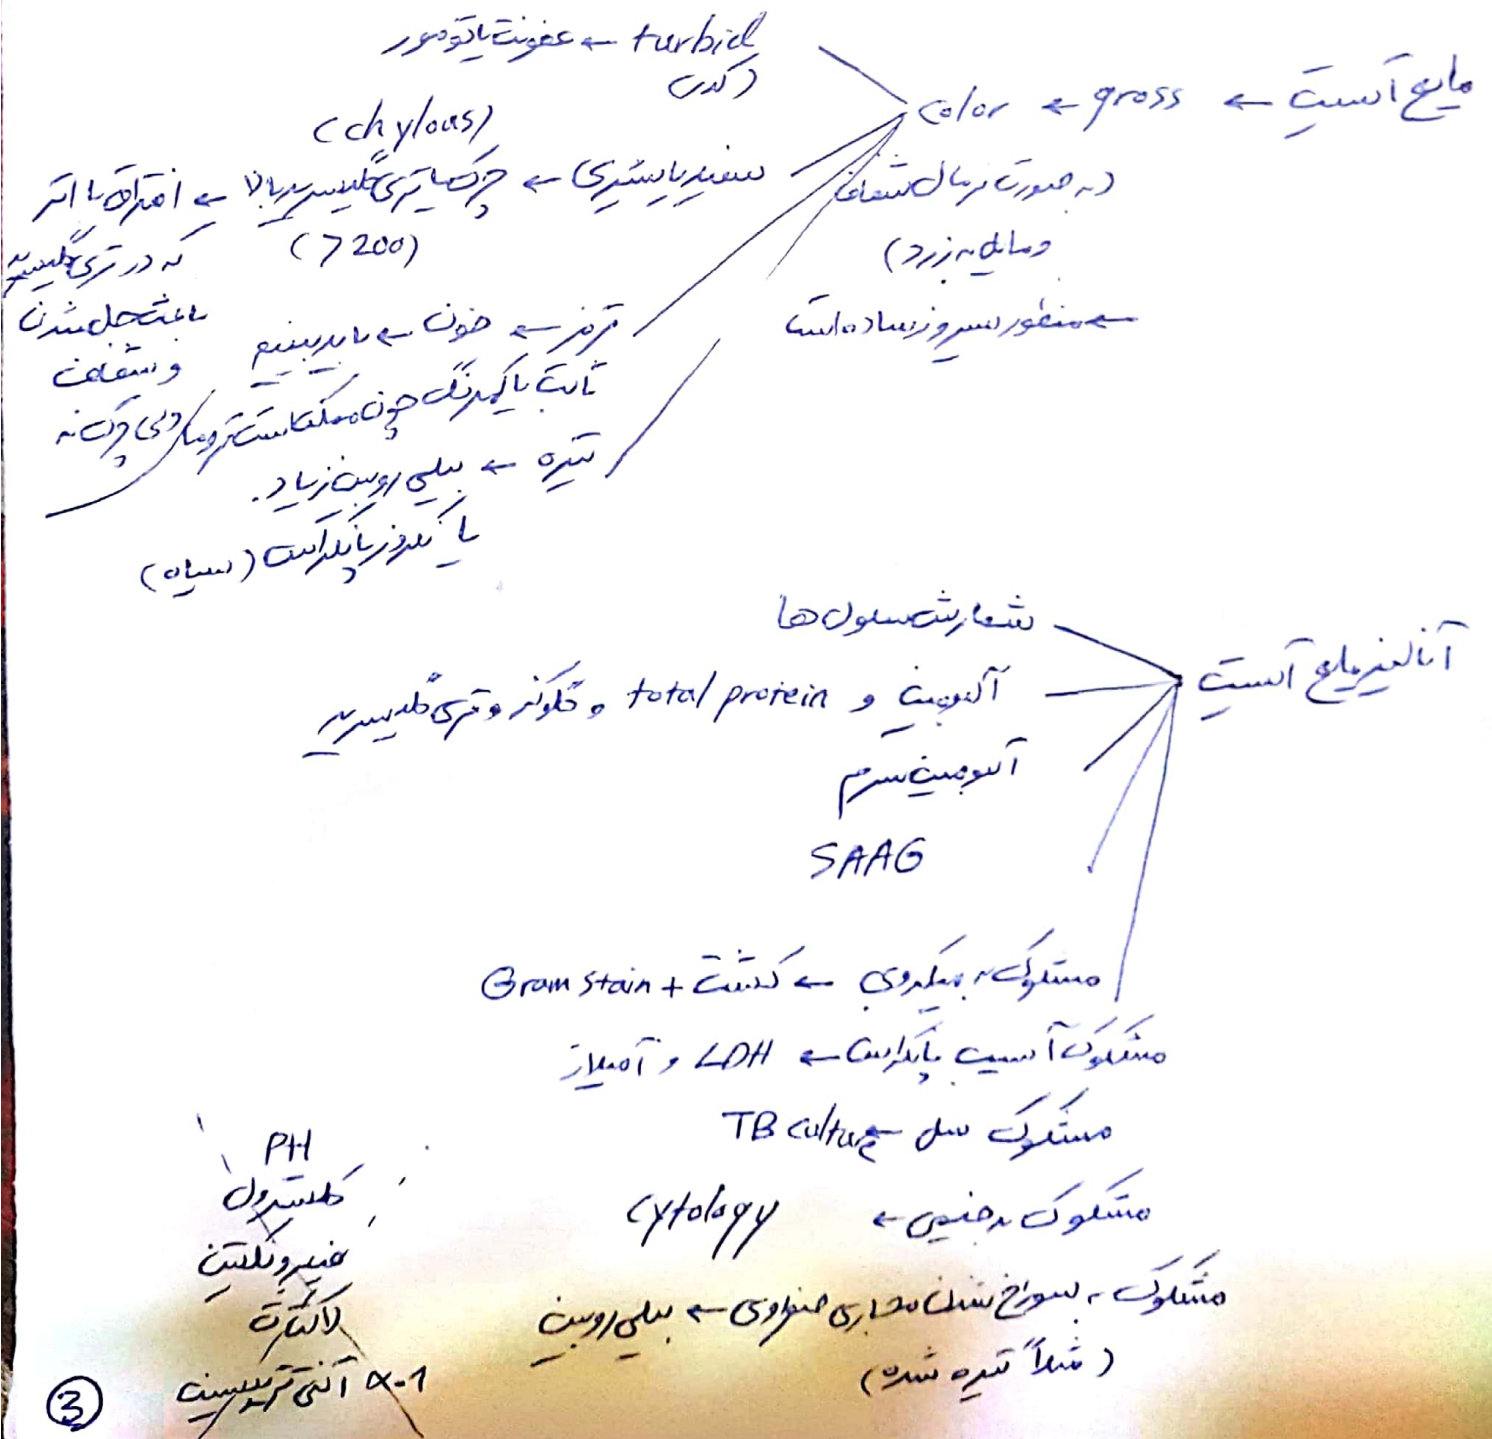 مایع آسیت ← gross ← color
(به صورت نرمال شفاف
و مایل به زرد)
← منظور سیروز ساده است
turbid ← عفونت یا تومور
(کدر)
(chylous)
سفید یا شیری ← چرک یا تری گلیسیرید بالا ← افتراق با اتر
(>200)
که در تری گلیسیرید
باعث حل شدن
و شفافیت
ولی چرک نه
قرمز ← خون ← باید ببینیم
ثابت یا کمرنگ چون ممکنه است تروما
تیره ← بیلی روبین زیاد.
یا نکروز پانکراست (سیاه)
آنالیز مایع آسیت
شمارش سلول ها
آلبومین و total protein و گلوکز و تری گلیسیرید
آلبومین سرم
SAAG
مشکوک به میکروبی ← کشت + Gram stain
مشکوک آسیب پانکراس ← LDH و آمیلاز
مشکوک سل ← TB culture
مشکوک بدخیمی ← cytology
مشکوک به سوراخ شدن مجاری صفراوی ← بیلی روبین
(مثلاً تیره شده)
PH
کلسترول
فیبرونکتین
لاکتات
α-1 آنتی تریپسین
3